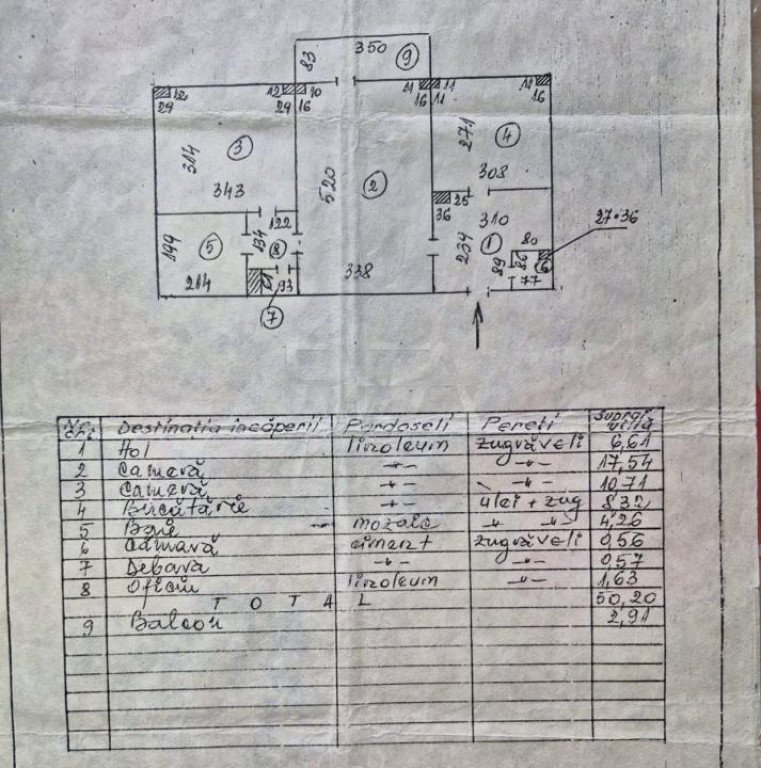 350
83
9
12
29
12
10
29
16
11
11
16
11
11
16
314
3
343
520
2
271
4
308
25
36
310
27·36
199
5
214
122
134
8
93
7
338
234
1
80
89
86
6
77
Nr. crt. Destinația încăperii Pardoseli Pereti Supraf. utilă
1 Hol linoleum zugrăveli 6,61
2 Cameră -〃- -〃- 17,54
3 Cameră -〃- -〃- 10,71
4 Bucătărie -〃- ulei + zug 8,32
5 Baie mozaic 〃 〃 4,26
6 Cămară ciment zugrăveli 0,56
7 Debara -〃- -〃- 0,57
8 Oficiu linoleum -〃- 1,63
T O T A L 50,20
9 Balcon 2,91